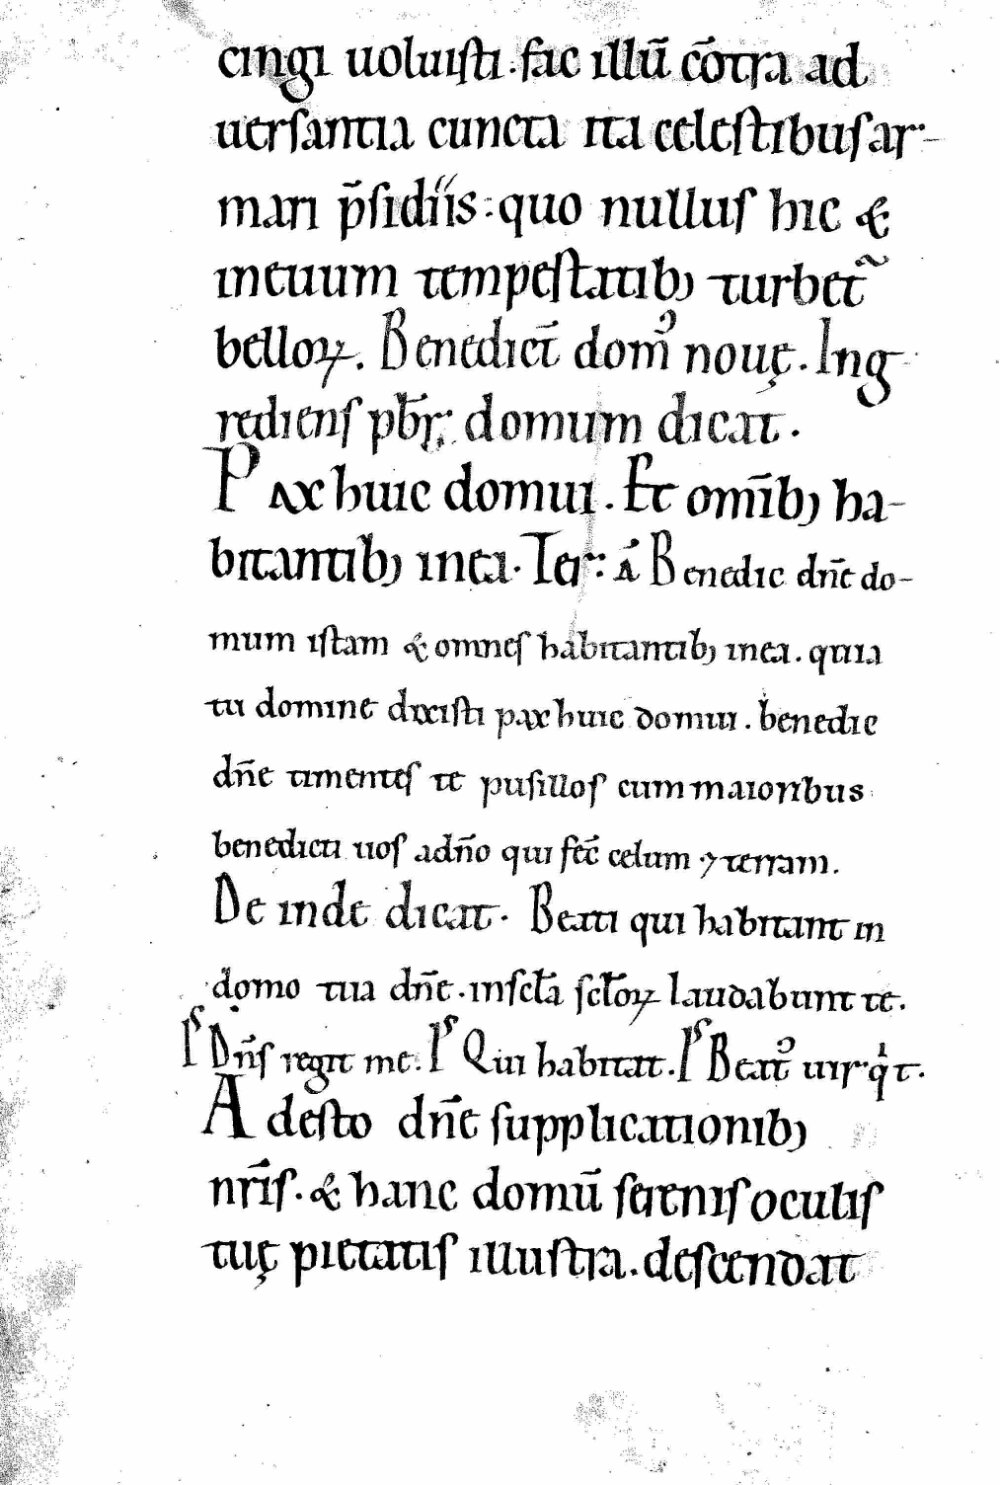 cingi uoluisti. fac illū cōtra ad
uersantia cuncta ita celestibus ar-
mari p̄sidiis: quo nullus hic &
ineuum tempestatibꝫ turbet᷑
belloꝝ. Benedict̄ dom᷒ nouę. Ing
rediens pb̄r; domum dicat.
Pax huic domui. Et om̄ibꝫ ha-
bitantibꝫ in ea. Ter: A᷑ Benedic dn̄e do-
mum istam & omnes habitantibꝫ in ea. quia
tu domine dixisti pax huic domui. benedic
dn̄e timentes te pusillos cum maioribus
benedicti uos a dn̄o qui fec̄ celum ⁊ terram.
De inde dicat. Beati qui habitant in
domo tua dn̄e. in sc̄la sc̄loꝝ laudabunt te.
Ps Dn̄s regit me. Ps Qui habitat. Ps Beat᷒ uir. qͥ t.
Adesto dn̄e supplicationibꝫ
nr̄is. & hanc domū serenis oculis
tuę pietatis illustra. descendat